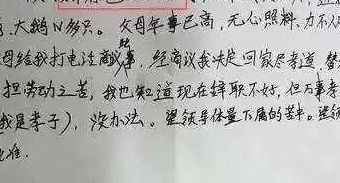 大鹅N多只。父母年事已高，无心照料，力不从
母给我打电话商议事，经商议我决定回家尽孝道 替
担劳动之苦，我也知道现在辞职不好，但万事孝
我是孝子），没办法。望领导体量下属的苦中。望领
批准.